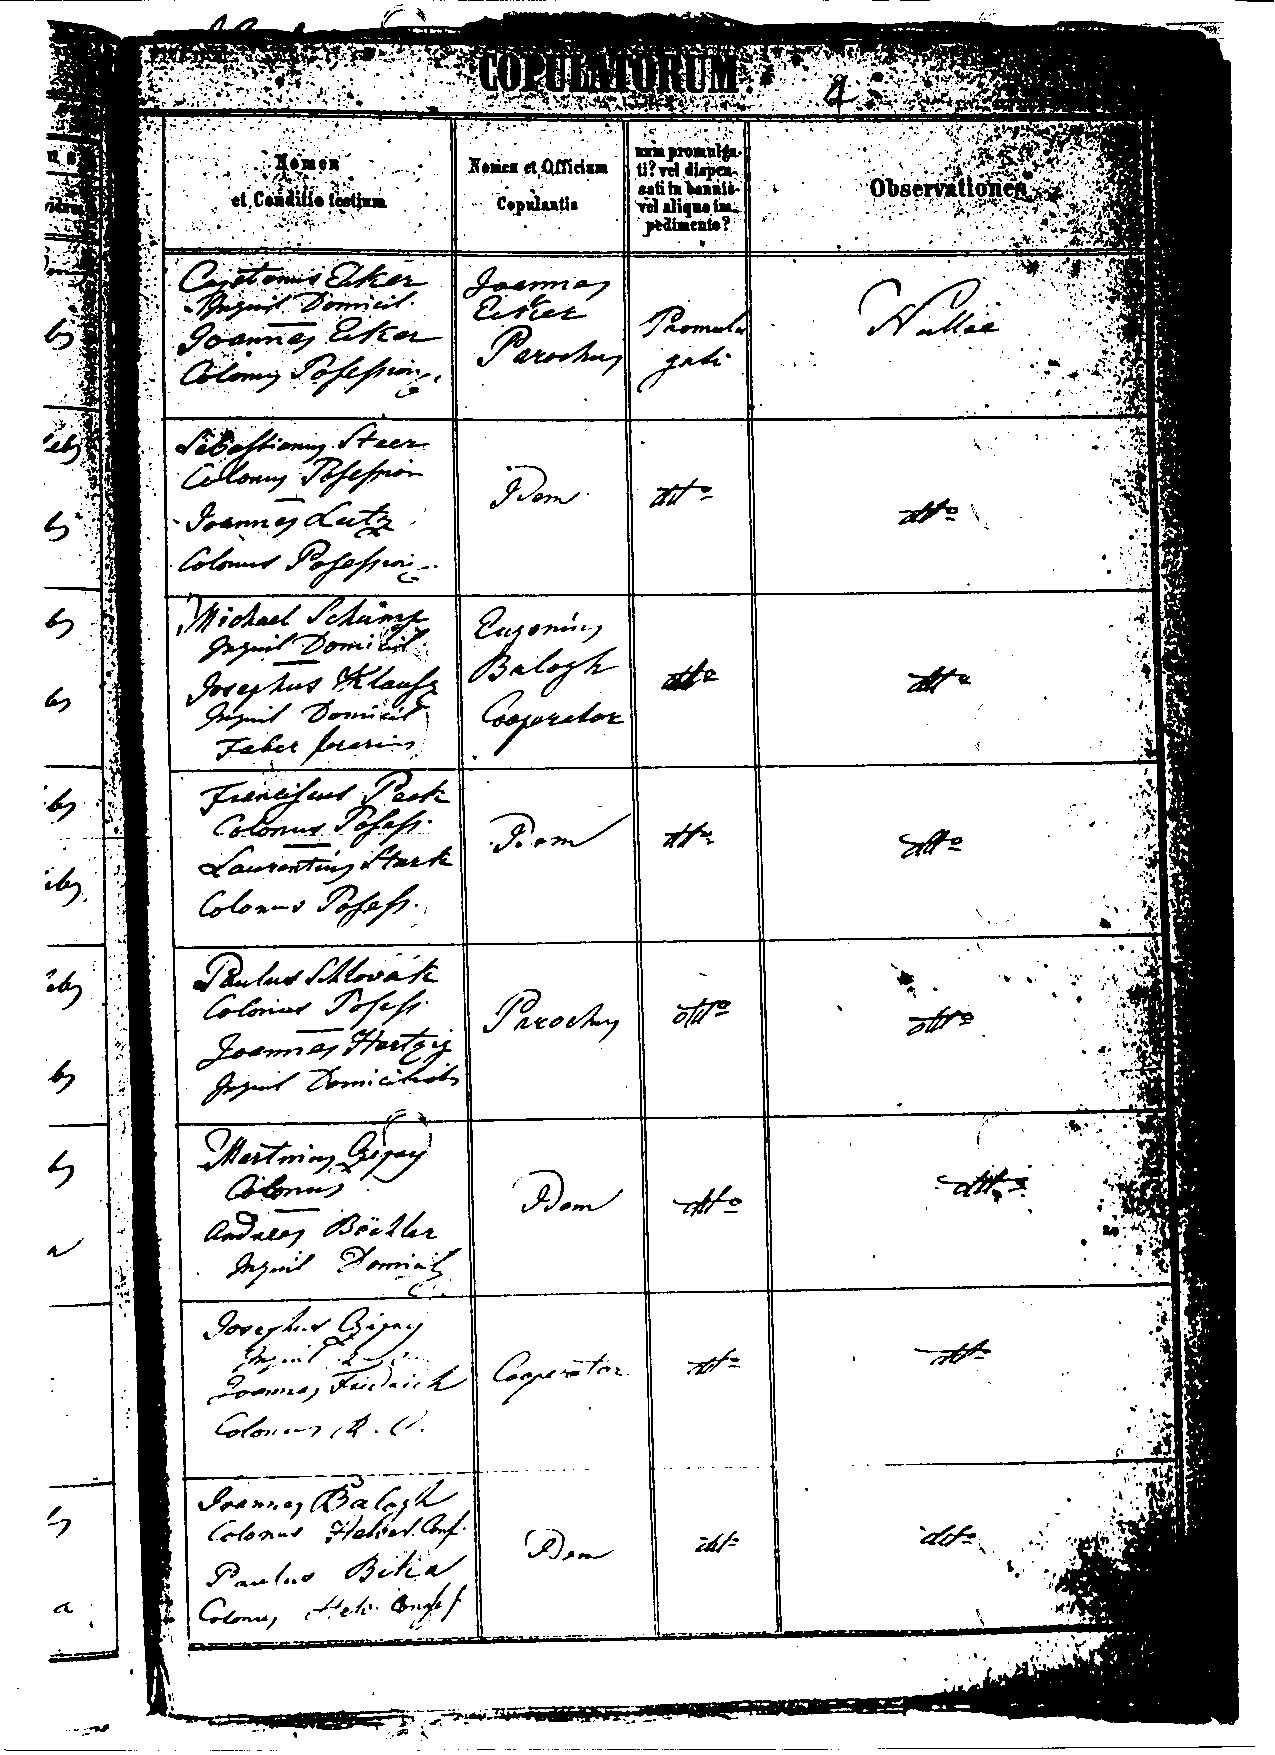 COPULATORUM.
4
Nomen
et Conditio testium
Nomen et Officium
Copulantis
num promulga-
ti? vel dispen-
sati in bannis
vel aliquo im-
pedimento?
Observationes
Cajetanus Ecker
Inquil Domicil
Joannes Ecker
Colonus Possession
Joannes
Ecker
Parochus
Promul
gati
Nullae
Sebastianus Steer
Colonus Possession
Joannes Lutz
Colonus Possession
Idem
dtto
dtto
Michael
Inquil Domicil
Josephus Klausz
Inquil Domicil
Faber
Eugenius
Balogh
Cooperator
dtto
dtto
Franciscus Peck
Colonus Possess.
Laurentius Stark
Colonus Possess.
Idem
dtto
dtto
Paulus Schlovák
Colonus Possess
Joannes Hartzig
Inquil Domiciliat
Parochus
dtto
dtto
Martinus Czigay
Colonus
Andreas Böchler
Inquil Domicil
Idem
dtto
dtto
Josephus Czigay
Inquil
Joannes Friedrich
Colonus R. C.
Cooperator
dtto
dtto
Joannes Balogh
Colonus Helvet. Conf.
Paulus Bika
Colonus Helv. Confess
Idem
dtto
dtto